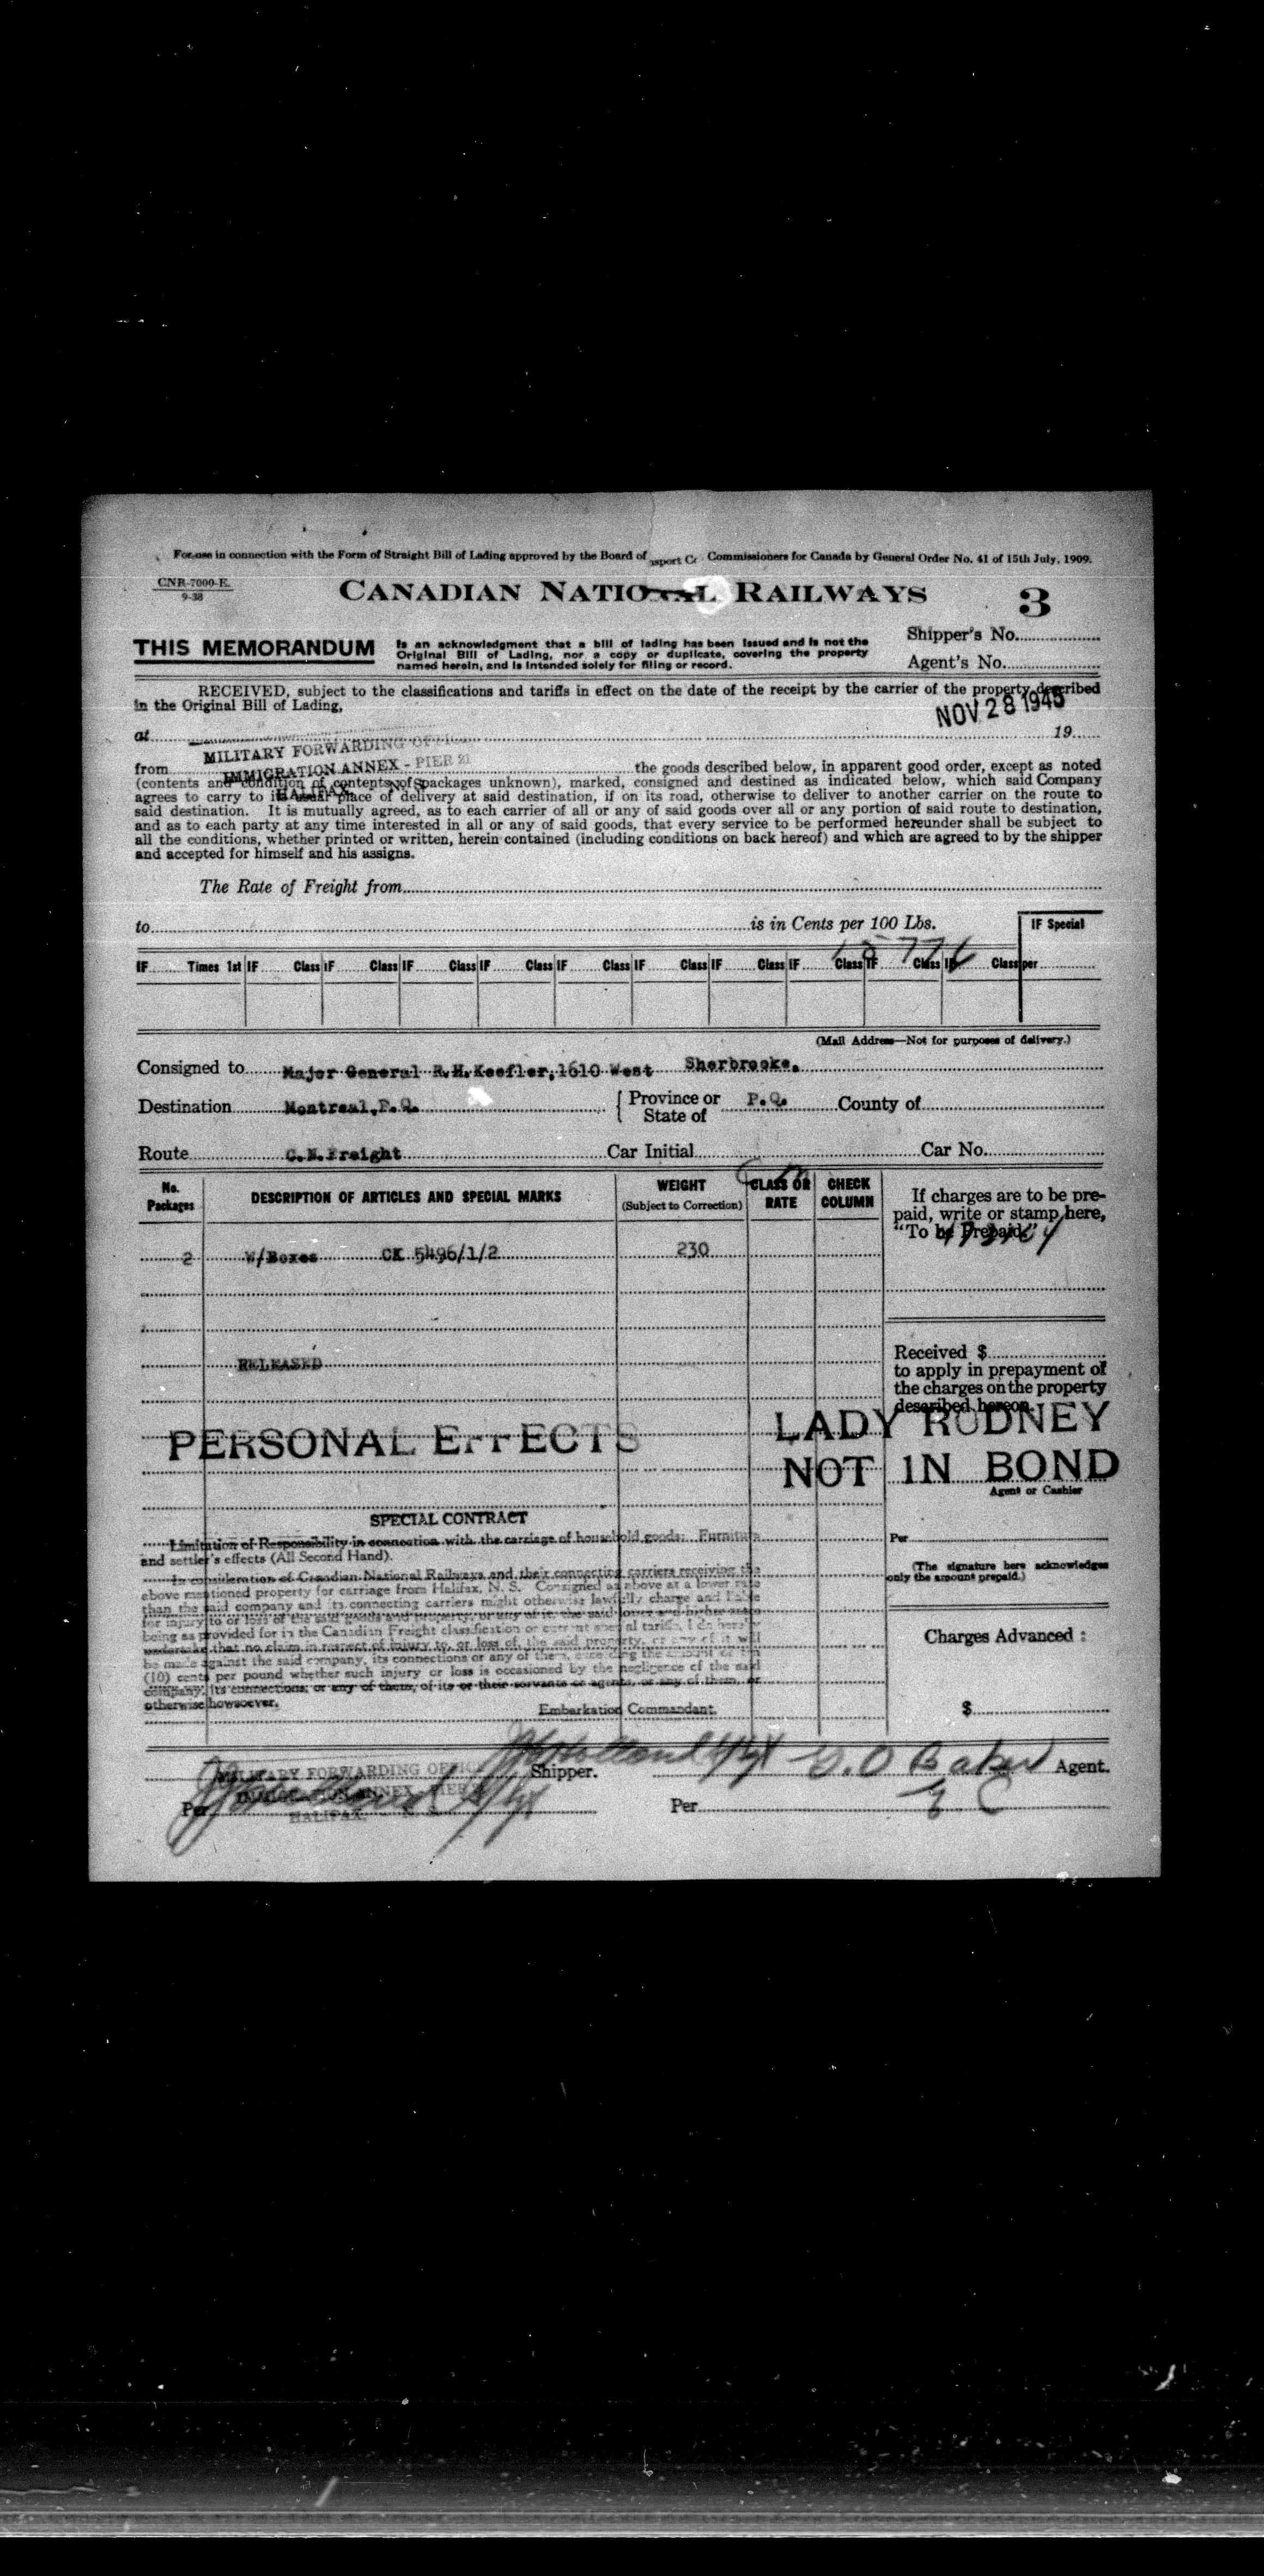 For use in connection with the Form of Straight Bill of Lading approved by the Board of Commissioners for Canada by General Order No. 41 of 15th July, 1909.
CNR-7000-E.
9-38
CANADIAN NATIONAL RAILWAYS
3
Shipper's No.
Agent's No.
THIS MEMORANDUM
is an acknowledgment that a bill of lading has been issued and is not the
Original Bill of Lading, nor a copy or duplicate, covering the property
named herein, and is intended solely for filing or record.
RECEIVED, subject to the classifications and tariffs in effect on the date of the receipt by the carrier of the property described
in the Original Bill of Lading,
NOV 28 1945
at 19
MILITARY FORWARDING OFFICE
IMMIGRATION ANNEX - PIER 21
HALIFAX N S
from the goods described below, in apparent good order, except as noted
(contents and condition of contents of packages unknown), marked, consigned and destined as indicated below, which said Company
agrees to carry to its usual place of delivery at said destination, if on its road, otherwise to deliver to another carrier on the route to
said destination. It is mutually agreed, as to each carrier of all or any of said goods over all or any portion of said route to destination,
and as to each party at any time interested in all or any of said goods, that every service to be performed hereunder shall be subject to
all the conditions, whether printed or written, herein contained (including conditions on back hereof) and which are agreed to by the shipper
and accepted for himself and his assigns.
The Rate of Freight from
to is in Cents per 100 Lbs.
IF Special
IF Times 1st IF Class IF Class IF Class IF Class IF Class IF Class IF Class IF Class IF Class IF Class per
(Mail Address—Not for purposes of delivery.)
Consigned to Major General R.H.Keefler,1610 West Sherbrooke.
Destination Montreal,P.Q. Province or State of P.Q. County of
Route C.N.Freight Car Initial Car No.
No. Packages
DESCRIPTION OF ARTICLES AND SPECIAL MARKS
WEIGHT (Subject to Correction)
CLASS OR RATE
CHECK COLUMN
If charges are to be pre-
paid, write or stamp here,
"To be Prepaid."
2 W/Boxes CK 5496/1/2 230
RELEASED
Received $
to apply in prepayment of
the charges on the property
described hereon.
PERSONAL EFFECTS
LADY RODNEY
NOT IN BOND
Agent or Cashier
SPECIAL CONTRACT
Limitation of Responsibility in connection with the carriage of household goods: Furniture
and settler's effects (All Second Hand).
Per
(The signature here acknowledges
only the amount prepaid.)
In consideration of Canadian National Railways and their connecting carriers receiving the
above mentioned property for carriage from Halifax, N. S. Consigned as above at a lower rate
than the said company and its connecting carriers might otherwise lawfully charge and liable
for injury to or loss of the said goods and property, or any of it, the said lower and higher rates
being as provided for in the Canadian Freight classification or current special tariffs, I do hereby
undertake that no claim in respect of injury to, or loss of, the said property, or any of it will
be made against the said company, its connections or any of them, exceeding the amount of ten
(10) cents per pound whether such injury or loss is occasioned by the negligence of the said
company, its connections, or any of them, of its or their servants or agents, or any of them, or
otherwise howsoever.
Charges Advanced :
$
Embarkation Commandant.
Shipper.
G.O Baker Agent.
MILITARY FORWARDING OFFICE
HALIFAX,
Per
Per